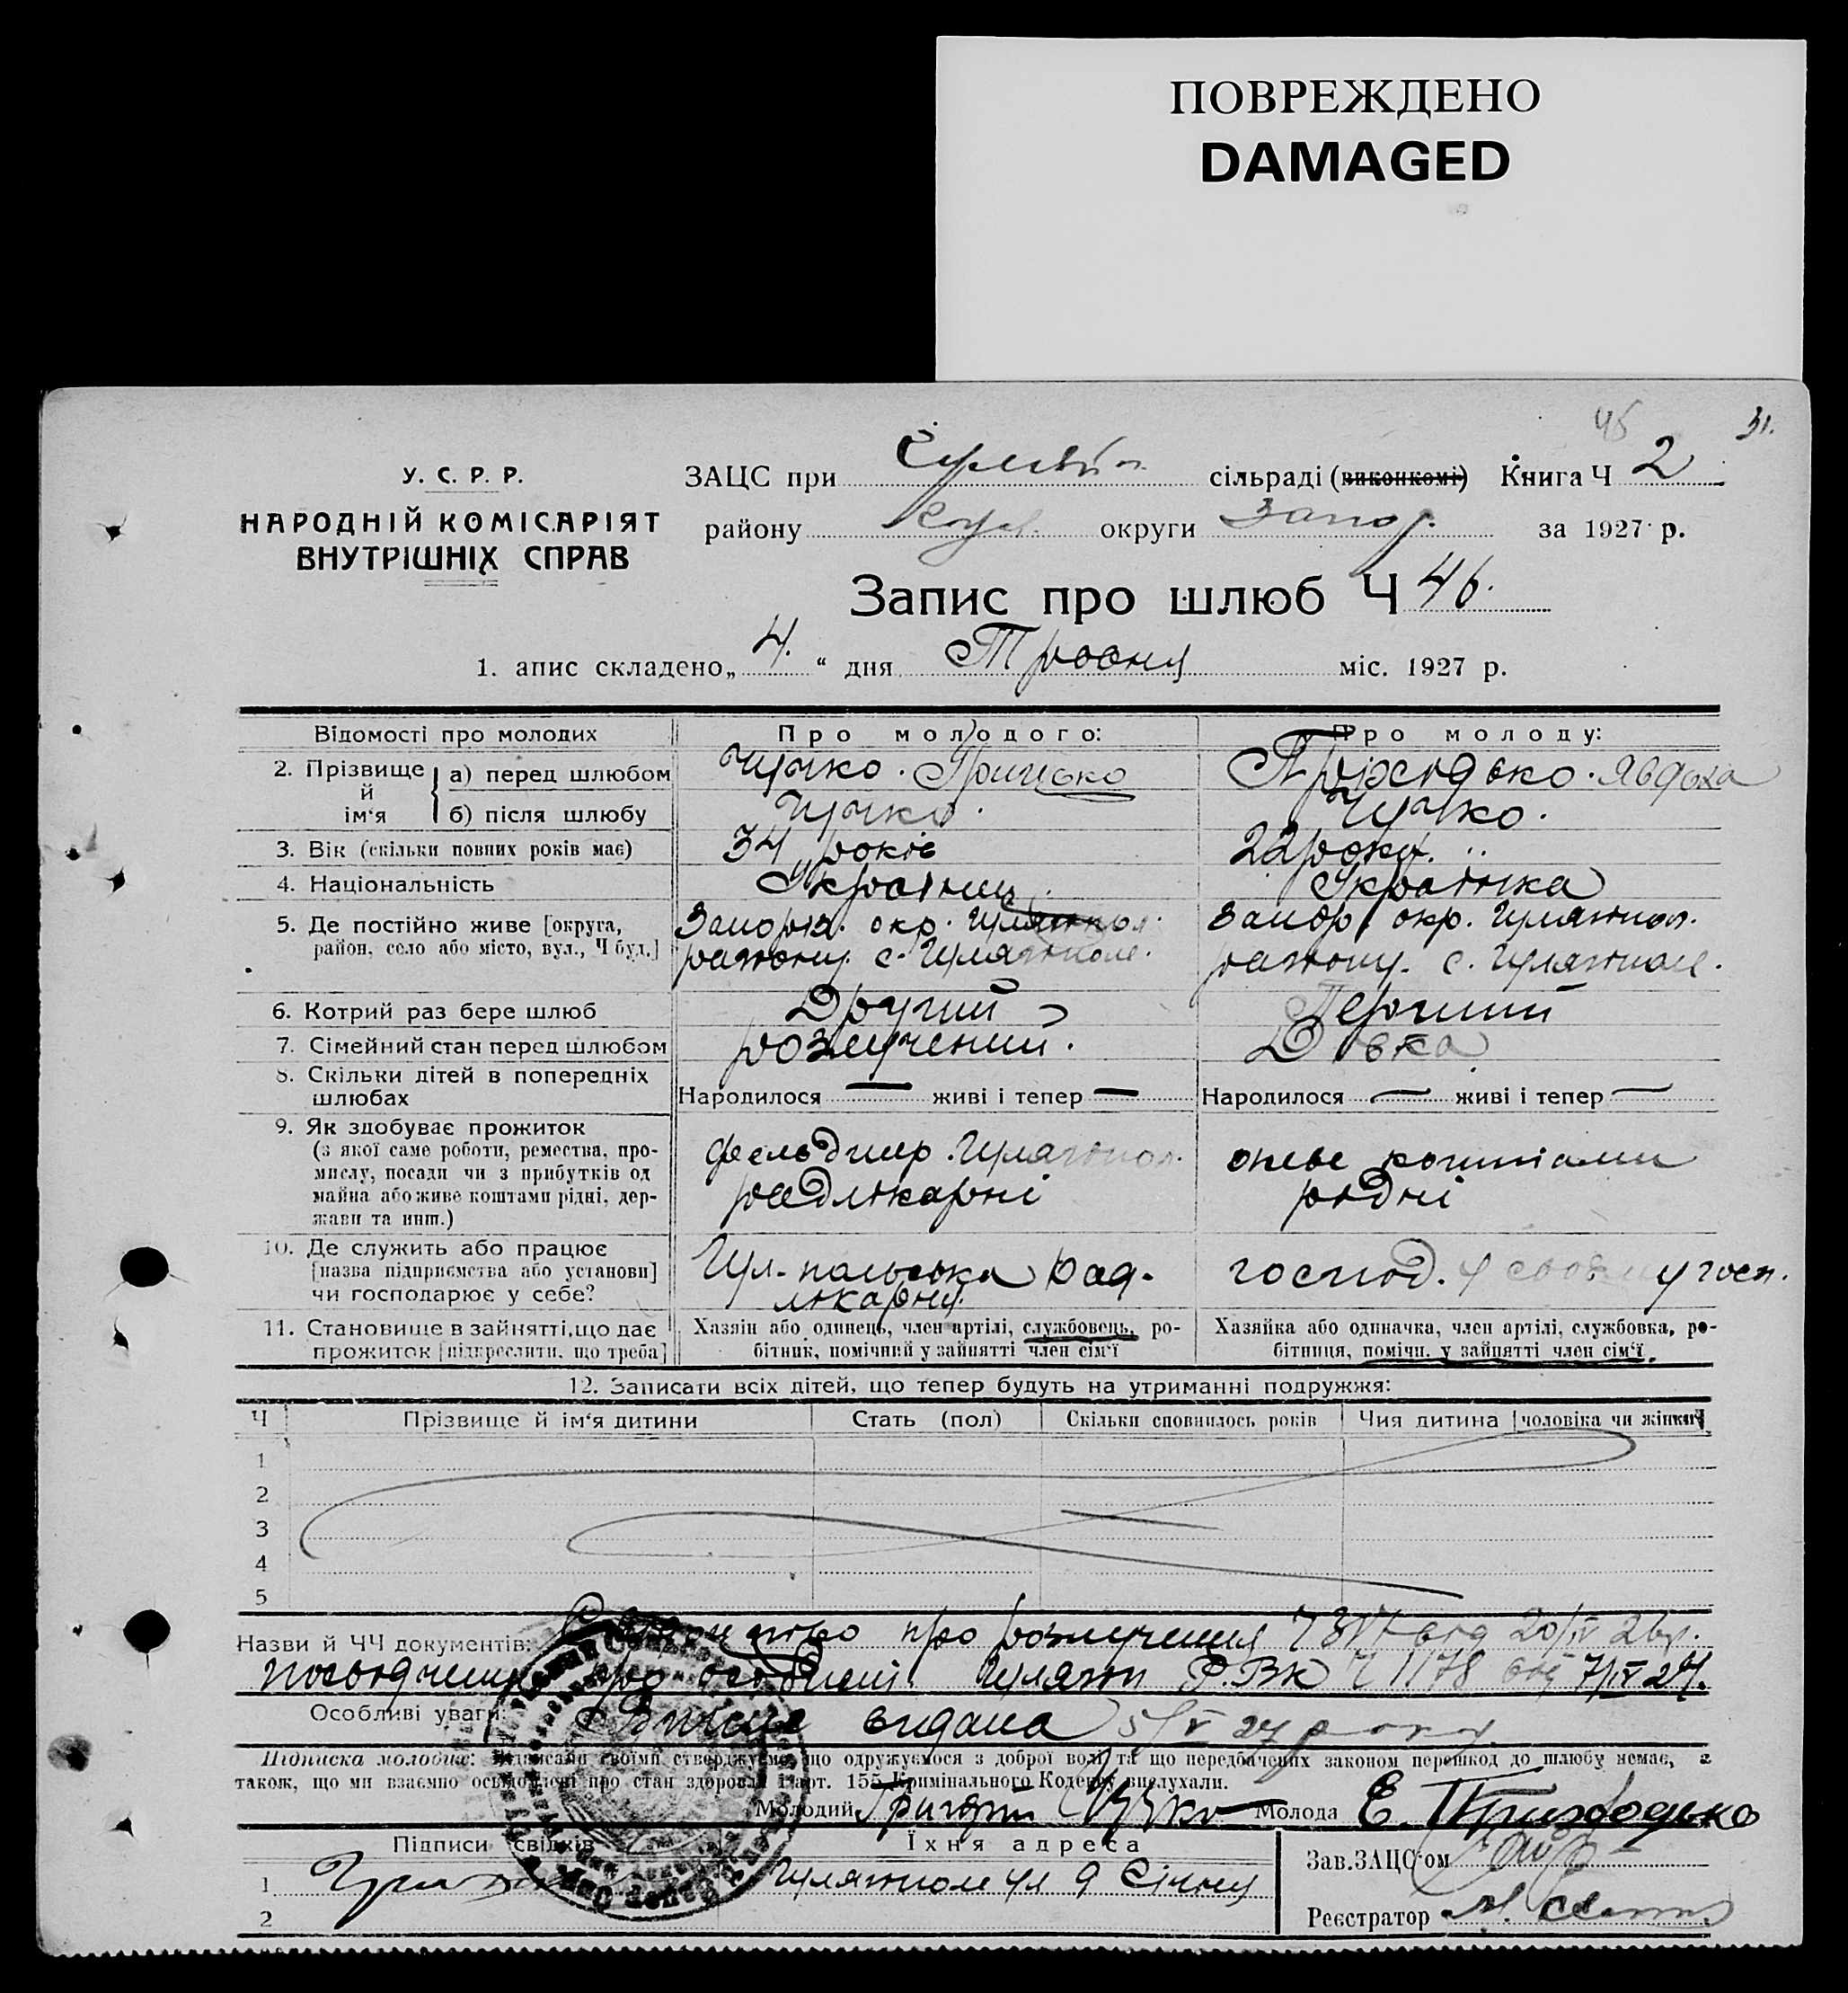 ПОВРЕЖДЕНО
DAMAGED
45 31.
У. С. Р. Р.
НАРОДНІЙ КОМІСАРІЯТ
ВНУТРІШНІХ СПРАВ
ЗАЦС при сільраді (виконкомі) Книга Ч 2
району округи Запор. за 1927 р.
Запис про шлюб Ч 46.
1. апис складено „ 4. “ дня Травня міс. 1927 р.
Відомості про молодих Про молодого: Про молоду:
2. Прізвище й ім'я а) перед шлюбом Чучко. Грицько Приходько. Явдоха
б) після шлюбу Чучко. Чучко.
3. Вік (скільки повних років має) 34 років 22 роки.
4. Національність Українец Українка
5. Де постійно живе [округа, Запоріз. окр. Гуляйпол. Запор. окр. Гуляйпол.
район, село або місто, вул., Ч буд.] району с. Гуляйполе. району. с. Гуляйполе.
6. Котрий раз бере шлюб Другий Перший
7. Сімейний стан перед шлюбом розлучений. Дівка
8. Скільки дітей в попередніх
шлюбах Народилося — живі і тепер — Народилося — живі і тепер —
9. Як здобуває прожиток
(з якої саме роботи, ремества, про- фельдшер. Гуляйпол. живе коштами
мислу, посади чи з прибутків од радлікарні рідні
майна або живе коштами рідні, дер-
жави та инш.)
10. Де служить або працює Гул-польська Рад- господ. у своєму госп.
[назва підприємства або установи] лікарня.
чи господарює у себе?
11. Становище в зайнятті, що дає Хазяїн або одинець, член артілі, службовець, ро- Хазяйка або одиначка, член артілі, службовка, ро-
прожиток [підкреслити, що треба] бітник, помічний у зайнятті член сім'ї бітниця, помічн. у зайнятті член сім'ї.
12. Записати всіх дітей, що тепер будуть на утриманні подружжя:
Ч Прізвище й ім'я дитини Стать (пол) Скільки сповнилось років Чия дитина [чоловіка чи жінки]
1
2
3
4
5
Назви й ЧЧ документів: про розлучення від 20/IV 26р.
посвідчення про особи Гуляйп Р.В.К Ч 1178 від 7/IV 27.
Особливі уваги: видана 5/V 27 року.
Підписка молодих: Підписами своїми стверджуємо, що одружуємося з доброї волі та що передбачених законом перешкод до шлюбу немає, а
також, що ми взаємно освідомлені про стан здоровля і арт. 155 Кримінального Кодексу вислухали.
Молодий Григорій Чучко Молода Е. Приходько
Підписи свідків Їхня адреса Зав.ЗАЦС'ом
1 Гуляйполе ул 9 Січня
2 Реєстратор